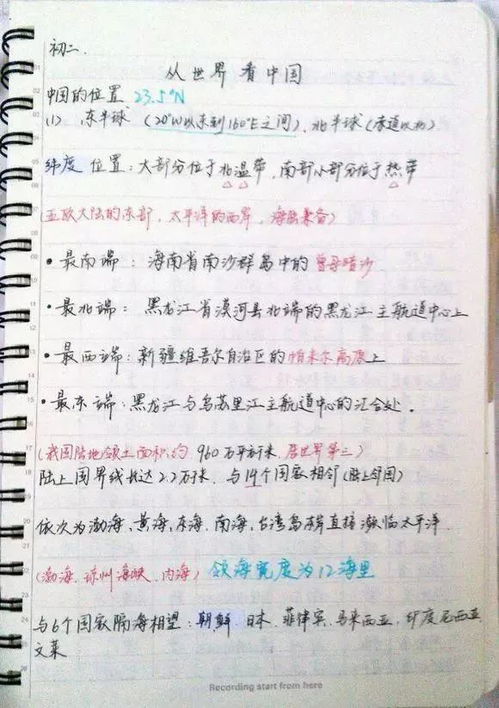 初二.
从世界看中国
中国的位置 23.5°N
(1) 东半球 (20°W以东到160°E之间), 北半球(赤道以北)
纬度 位置: 大部分位于北温带, 南部小部分位于热带
(亚欧大陆的东部, 太平洋的西岸, 海陆兼备)
• 最南端: 海南省南沙群岛中的曾母暗沙
• 最北端: 黑龙江省漠河县北端的黑龙江主航道中心上
• 最西端: 新疆维吾尔自治区的帕米尔高原上
• 最东端: 黑龙江与乌苏里江主航道中心的汇合处.
(我国陆地领土面积约 960万平方千米. 居世界第三)
陆上国界线长达2.2万千米, 与14个国家相邻(陆上邻国)
依次为渤海、黄海、东海、南海, 台湾岛东岸直接濒临太平洋.
(渤海、琼州海峡、内海) 领海宽度为12海里
与6个国家隔海相望: 朝鲜 日本. 菲律宾、马来西亚, 印度尼西亚
文莱
Recording start from here